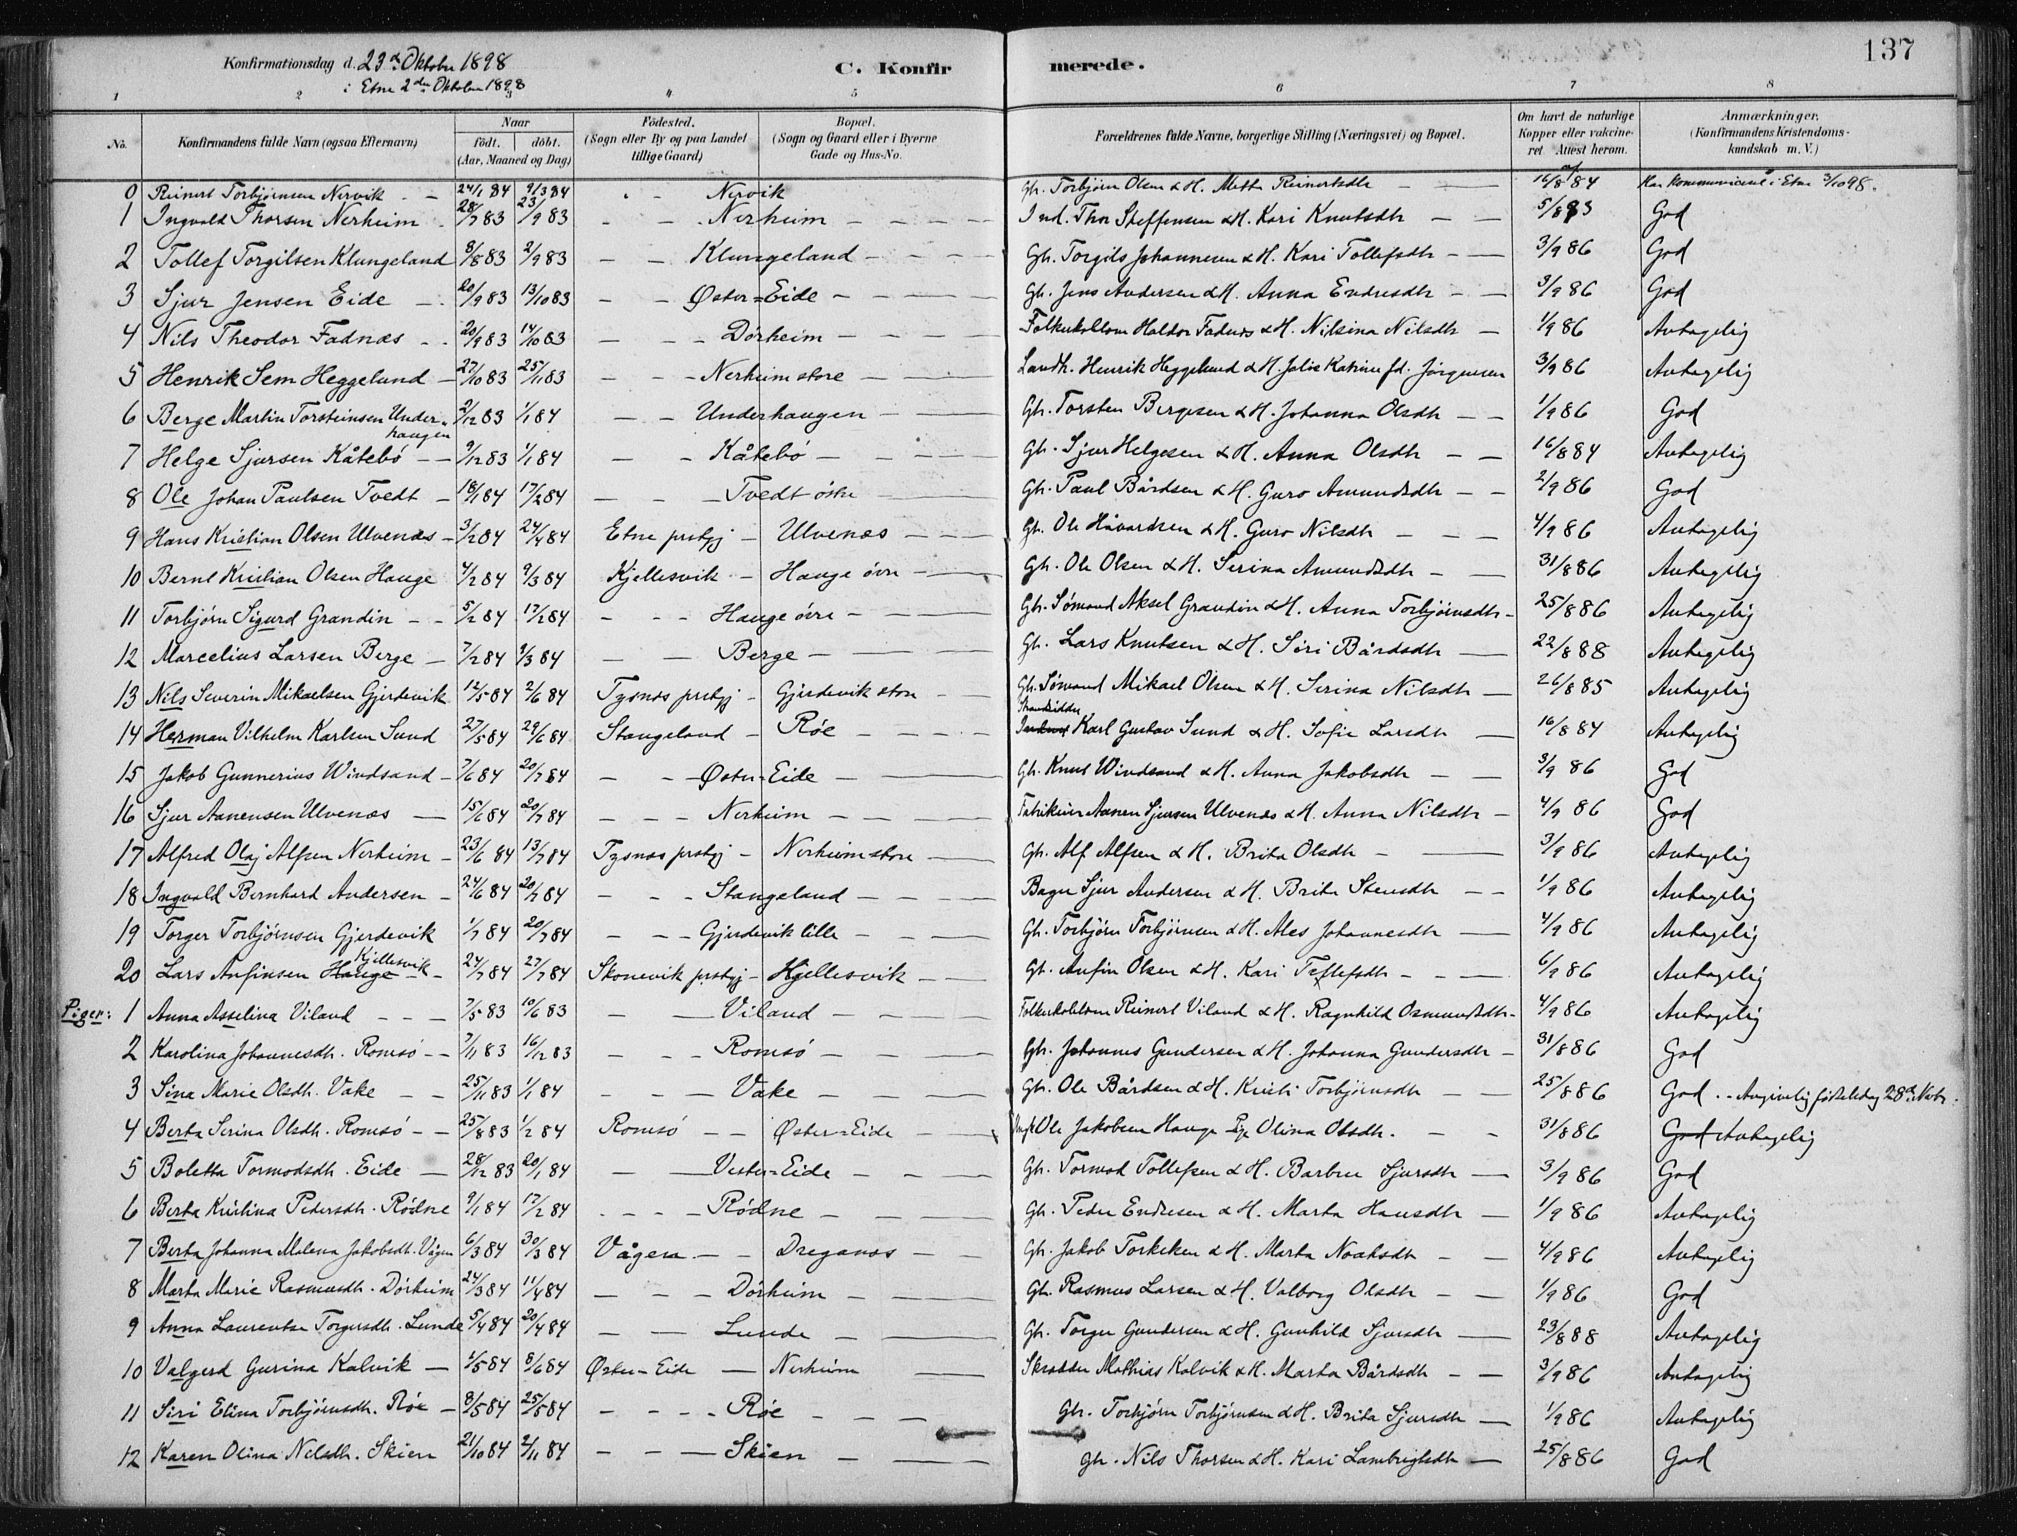 137
Konfirmationsdag d. 23de Oktober 1898
i Etne 2den Oktober 1898
C. Konfirmerede.
1 2 3 4 5 6 7 8
No. Konfirmandens fulde Navn (ogsaa Efternavn) Naar født. døbt. (Aar, Maaned og Dag) Fødested. (Sogn eller By og paa Landet tillige Gaard) Bopæl. (Sogn og Gaard eller i Byerne Gade og Hus-No. Forældrenes fulde Navne, borgerlige Stilling (Næringsvei) og Bopæl. Om havt de naturlige Kopper eller vaccineret. Attest herom. Anmærkninger. (Konfirmandens Kristendomskundskab m. V.)
0 Reinert Torbjørnsen Nervik 24/1 84 9/3 84 Nervik Gb. Torbjørn Olsen & H. Metta Reinertsdtr 16/8 84 Har kommuniceret i Etne 3/10 98.
1 Ingvald Thorsen Nerheim 28/7 83 23/9 83 Nerheim Ind. Thor Steffensen & H. Kari Knutsdtr 5/8 83 God
2 Tollef Torgilsen Klungeland 8/8 83 2/9 83 Klungeland Gb. Torgils Johannesen & H. Kari Tollefsdtr 3/9 86 God
3 Sjur Jensen Eide 20/9 83 13/10 83 Øster=Eide Gb. Jens Andersen & H. Anna Endresdtr 3/9 86 God
4 Nils Theodor Fadnæs 20/9 83 14/10 83 Dörheim Folkeskolelærer Haldor Fadnæs & H. Nilsina Nilsdtr 1/9 86 Antagelig
5 Henrik Sem Heggelund 27/10 83 25/11 83 Nerheim store Landh. Henrik Heggelund & H. Jolie Katrine fd. Jørgensen 3/9 86 Antagelig
6 Berge Martin Torsteinsen Underhaugen 2/12 83 1/1 84 Underhaugen Gb. Torsten Bergesen & H. Johanna Olsdtr 1/9 86 God
7 Helge Sjursen Kåtebö 9/12 83 1/1 84 Kåtebö Gb. Sjur Helgesen & H. Anna Olsdtr 16/8 84 Antagelig
8 Ole Johan Paulsen Tvedt 18/1 84 17/2 84 Tvedt östre Gb. Paul Bårdsen & H. Guro Amundsdtr 2/9 86 God
9 Hans Kristian Olsen Ulvenæs 3/2 84 24/4 84 Etne prstgj Ulvenæs Gb. Ole Håvardsen & H. Guro Nilsdtr 4/9 86 Antagelig
10 Bernt Kristian Olsen Hauge 4/2 84 9/3 84 Kjellesvik Hauge övre Gb. Ole Olsen & H. Serina Amundsdtr 31/8 86 Antagelig
11 Torbjörn Sigurd Grandin 5/2 84 17/2 84 Hauge övre Gb. Sömand Aksel Grandin & H. Anna Torbjörnsdtr 25/8 86 Antagelig
12 Marcelius Larsen Berge 7/2 84 9/3 84 Berge Gb. Lars Knutsen & H. Siri Bårdsdtr 22/8 88 Antagelig
13 Nils Severin Mikaelsen Gjerdevik 12/5 84 2/6 84 Tysnæs prstgj Gjerdevik store Gb. Sömand Mikael Olsen & H. Serina Nilsdtr 26/8 85 Antagelig
14 Herman Vilhelm Karlsen Sund 27/5 84 29/6 84 Stangeland Röe Strandsidder Karl Gustav Sund & H. Sofie Larsdtr 16/8 84 Antagelig
15 Jakob Gunnerius Windsand 7/6 84 20/7 84 Øster=Eide Gb. Knut Windsand & H. Anna Jakobsdtr 3/9 86 God
16 Sjur Aanensen Ulvenæs 15/6 84 20/7 84 Nerheim Aanen Sjursen Ulvenæs & H. Anna Nilsdtr 4/9 86 God
17 Alfred Olaj Alfsen Nerheim 23/6 84 13/7 84 Tysnæs prstgj Nerheim store Gb. Alf Alfsen & H. Brita Olsdtr 3/9 86 Antagelig
18 Ingvald Bernhard Andersen 24/6 84 20/7 84 Stangeland Bager Sjur Andersen & H. Brita Stensdtr 1/9 86 Antagelig
19 Torger Torbjörnsen Gjerdevik 1/7 84 20/7 84 Gjerdevik lille Gb. Torbjörn Torbjörnsen & H. Ales Johannesdtr 4/9 86 Antagelig
20 Lars Anfinsen Hauge Kjellesvik 24/7 84 27/7 84 Skonevik prstgj Kjellesvik Gb. Anfin Olsen & H. Kari Tollefsdtr 6/9 86 Antagelig
Piger: 1 Anna Asselina Viland 7/5 83 10/6 83 Viland Folkeskolelærer Reinert Viland & H. Ragnhild Osmundsdtr 4/9 86 Antagelig
2 Karolina Johannesdtr. Romsö 7/11 83 16/12 83 Romsö Gb. Johannes Gundersen & H. Johanna Gundersdtr 31/8 86 God
3 Sina Marie Olsdtr. Vake 25/11 83 1/1 84 Vake Gb. Ole Bårdsen & H. Kristi Torbjörnsdtr 25/8 86 God. - Angivelig fødselsdag 28de Novbr.
4 Berta Serina Olsdtr. Romsö 25/8 83 1/2 84 Romsö Øster=Eide Ole Jakobsen Hauge Pige Olina Olsdtr. 31/8 86 God Antagelig
5 Boletta Tormodsdtr. Eide 28/12 83 20/1 84 Vester=Eide Gb. Tormod Tollefsen & H. Barbru Sjursdtr 3/9 86 God
6 Berta Kristina Pedersdtr. Rödne 9/1 84 17/2 84 Rödne Gb. Peder Endresen & H. Marta Hansdtr 1/9 86 Antagelig
7 Berta Johanna Malena Jakobsdtr. Vågen 6/3 84 30/3 84 Vågen Dreganæs Gb. Jakob Torkelsen & H. Marta Noahsdtr 4/9 86 Antagelig
8 Marta Marie Rasmusdtr. Dörheim 24/3 84 11/4 84 Dörheim Gb. Rasmus Larsen & H. Valborg Olsdtr 1/9 86 God
9 Anna Laurentse Torgersdtr. Lunde 5/4 84 20/4 84 Lunde Gb. Torger Gundersen & H. Gunhild Sjursdtr 23/8 88 Antagelig
10 Valgerd Gurina Kalvik 1/5 84 8/6 84 Øster=Eide Nerheim Skrædder Mathias Kalvik & H. Marta Bårdsdtr 3/9 86 Antagelig
11 Siri Elina Torbjörnsdtr. Röe 8/5 84 25/5 84 Röe Gb. Torbjörn Torbjörnsen & H. Brita Sjursdtr 1/9 86 Antagelig
12 Karen Olina Nelsdtr. Skien 21/10 84 2/11 84 Skien Gb. Nils Thorsen & H. Kari Lambrigtsdtr 25/8 86 God